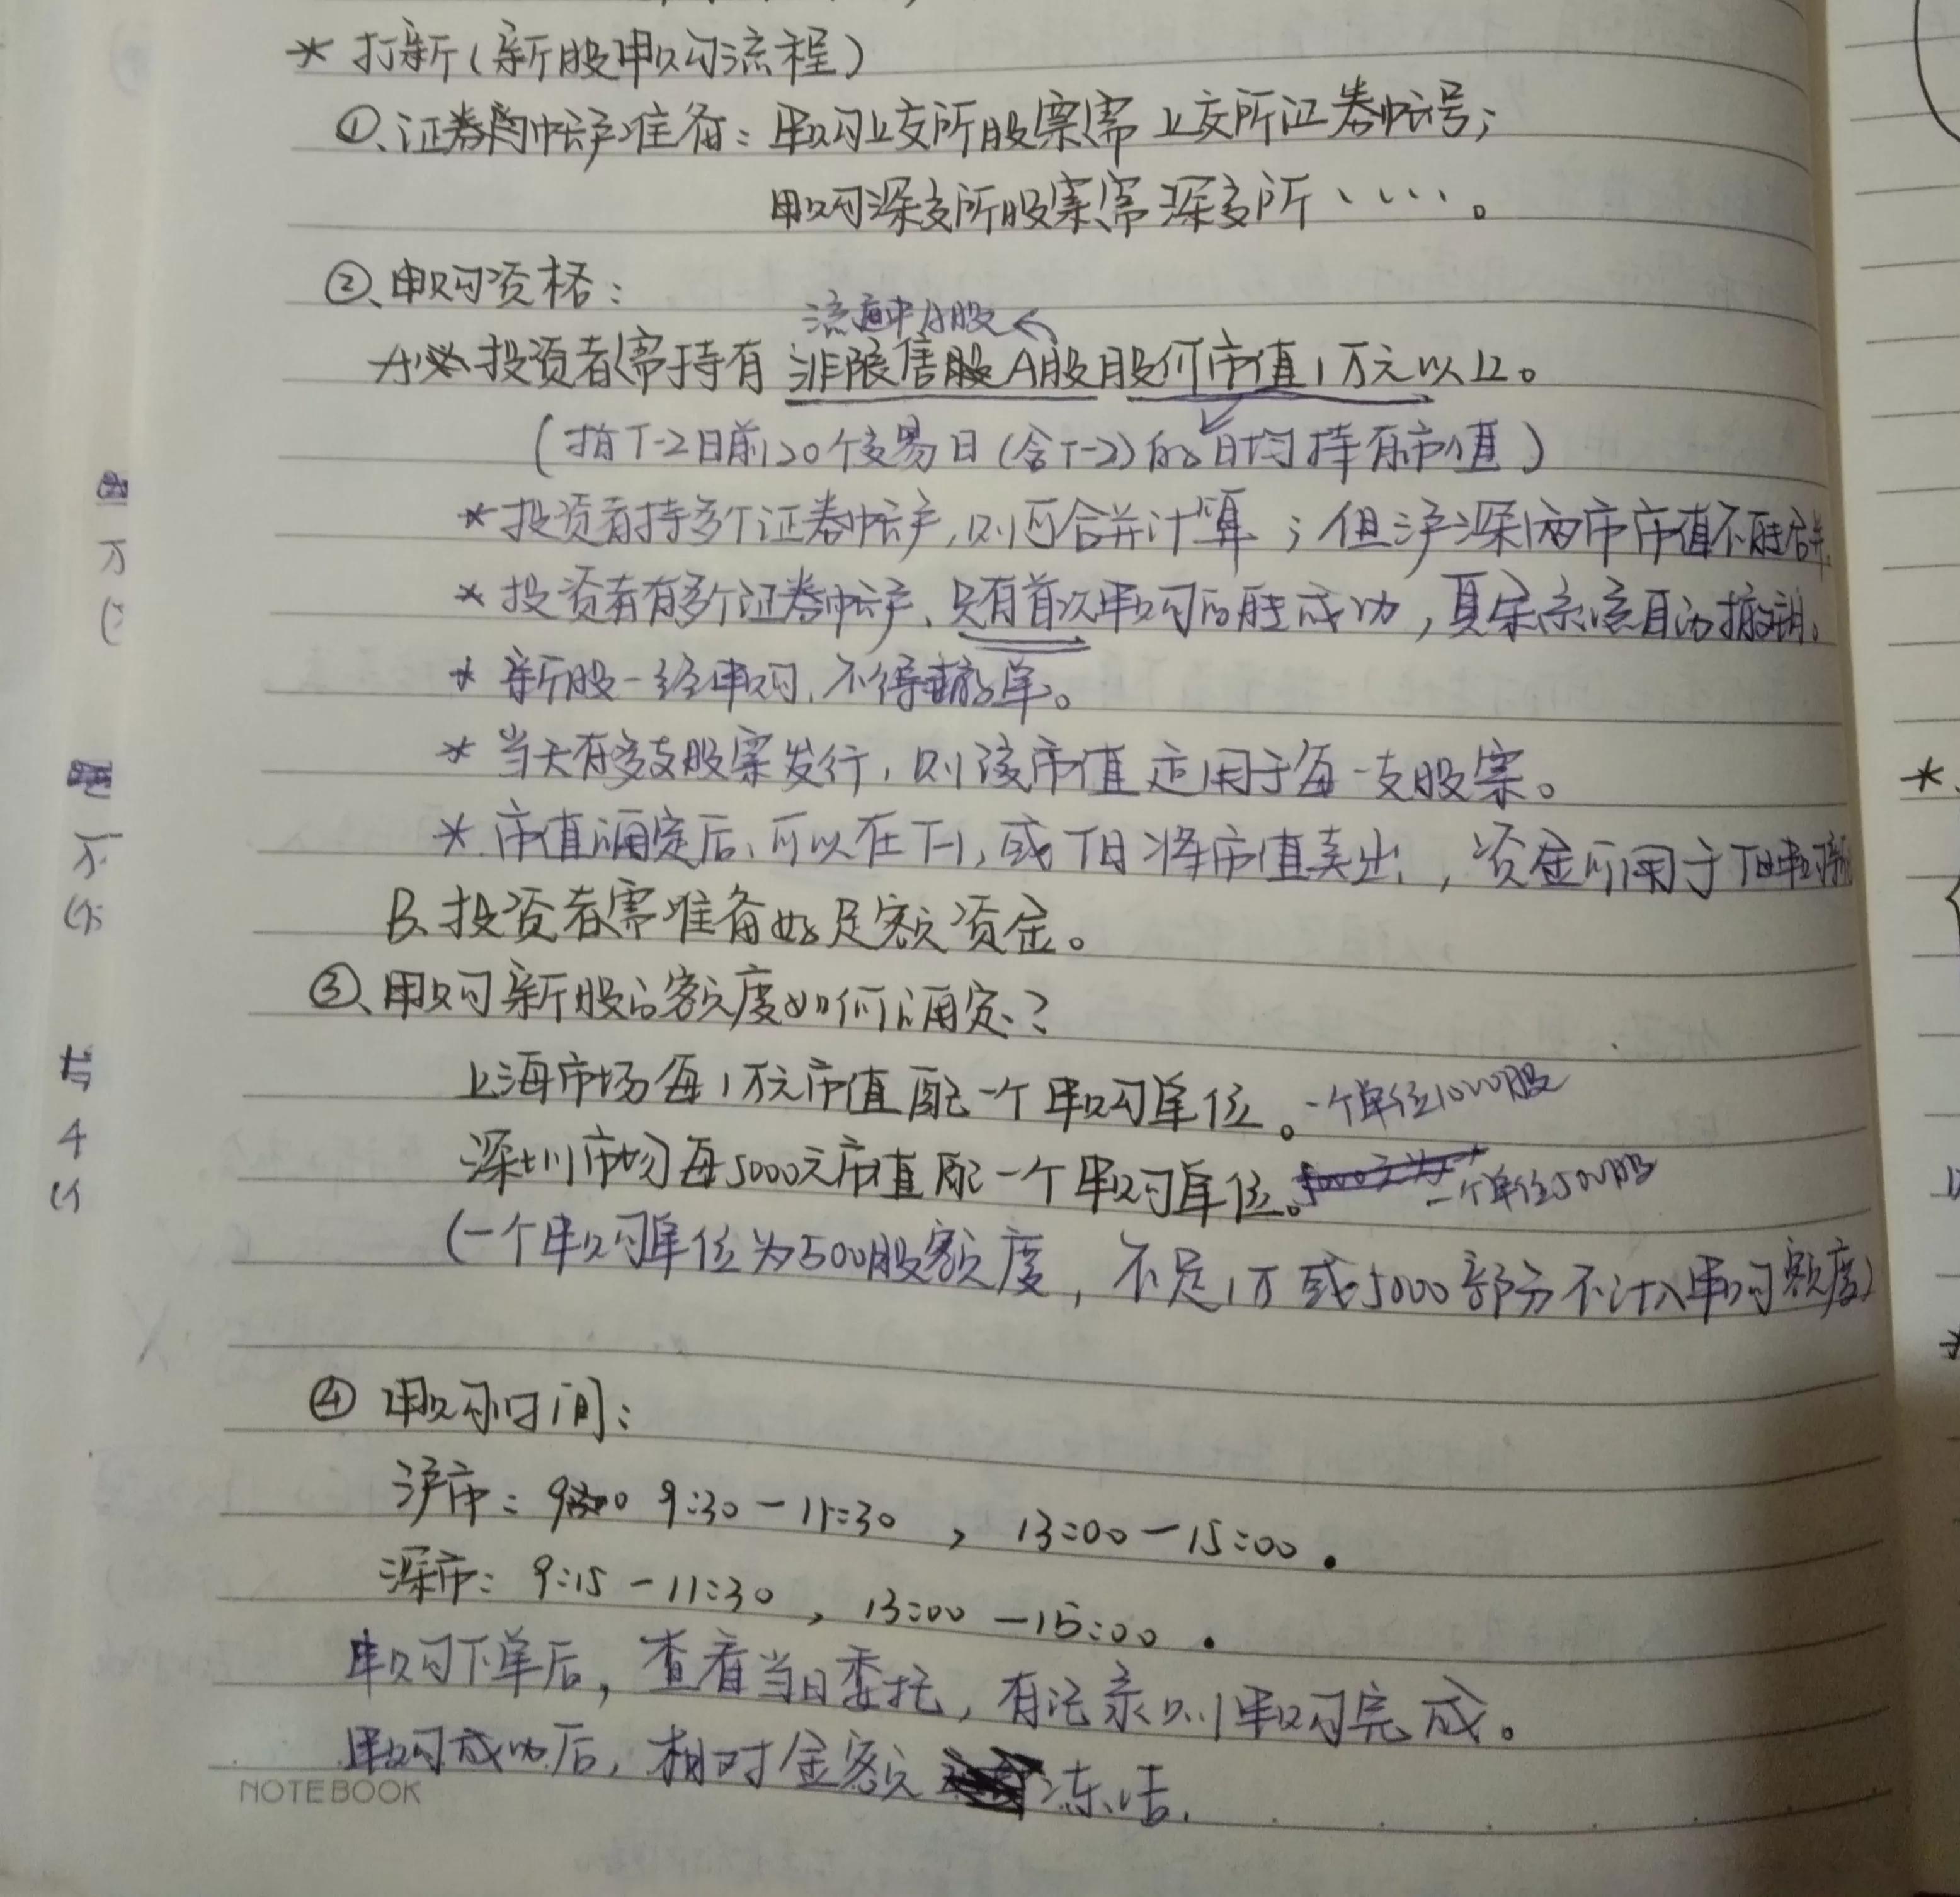 * 打新（新股申购流程）
①、证券帐户准备：申购上交所股票需上交所证券帐号；
申购深交所股票需深交所、、、、。
②、申购资格：
流通中A股
投资者需持有非限售A股股份市值1万元以上。
（指T-2日前20个交易日（含T-2）的日均持有市值）
* 投资者持多个证券帐户，则可合并计算；但沪深两市市值不能合并.
* 投资者有多个证券帐户、只有首次申购的能成功，其余系统自动撤销。
* 新股一经申购，不得撤单。
* 当天有多支股票发行，则该市值适用于每一支股票。
* 市值确定后，可以在T-1，或T日将市值卖出，资金可用于T日申购新
B、投资者需准备好足额资金。
③、申购新股的额度如何确定？
上海市场每1万元市值配一个申购单位。一个单位1000股
深圳市场每5000元市值配一个申购单位。一个单位500股
（一个申购单位为500股额度，不足1万或5000部分不计入申购额度）
④ 申购时间：
沪市：9:30－11:30，13:00－15:00.
深市：9:15－11:30，13:00－15:00.
申购下单后，查看当日委托，有记录则申购完成。
申购成功后，相对金额冻结.
NOTEBOOK